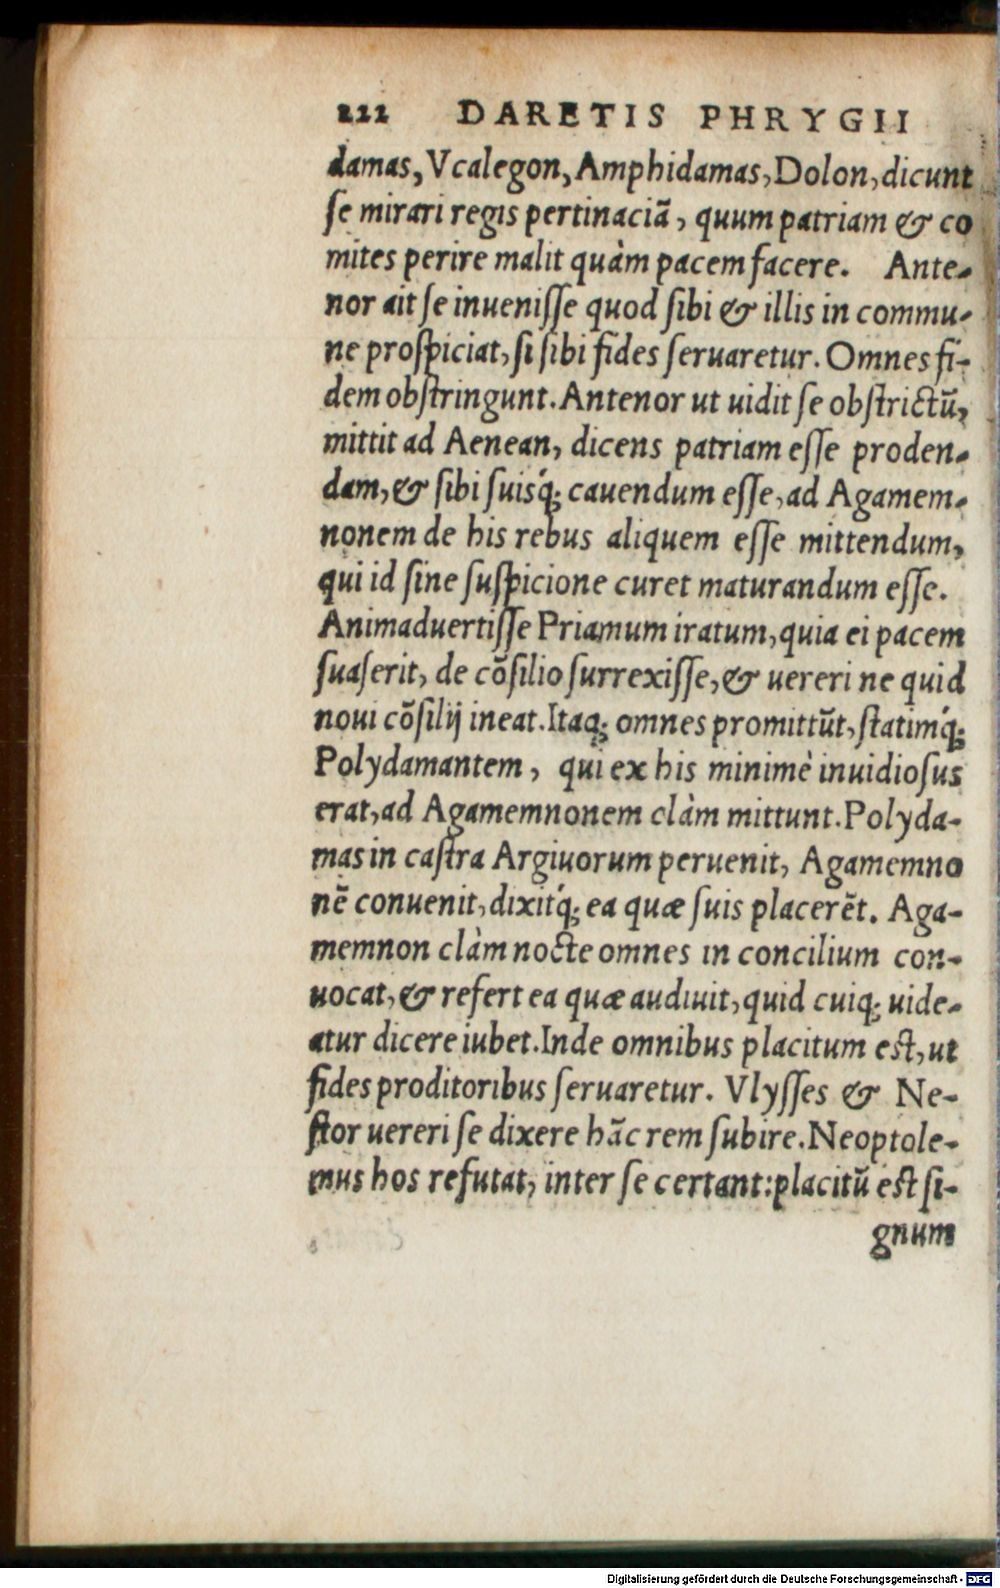 222 DARETIS PHRYGII
damas, Vcalegon, Amphidamas, Dolon, dicunt
ſe mirari regis pertinaciã, quum patriam & co
mites perire malit quàm pacem facere. Ante-
nor ait ſe inueniſſe quod ſibi & illis in commu-
ne proſpiciat, ſi ſibi fides ſeruaretur. Omnes fi-
dem obſtringunt. Antenor ut uidit ſe obſtrictũ,
mittit ad Aenean, dicens patriam eſſe proden-
dam, & ſibi ſuisq́; cauendum eſſe, ad Agamem-
nonem de his rebus aliquem eſſe mittendum,
qui id ſine ſuſpicione curet maturandum eſſe.
Animaduertiſſe Priamum iratum, quia ei pacem
ſuaſerit, de cõſilio ſurrexiſſe, & uereri ne quid
noui cõſilij ineat. Itaq; omnes promittũt, ſtatimq́;
Polydamantem, qui ex his minimè inuidioſus
erat, ad Agamemnonem clàm mittunt. Polyda-
mas in caſtra Argiuorum peruenit, Agamemno
nẽ conuenit, dixitq́; ea quæ ſuis placerẽt. Aga-
memnon clàm nocte omnes in concilium con-
uocat, & refert ea quæ audiuit, quid cuiq; uide-
atur dicere iubet. Inde omnibus placitum eſt, ut
fides proditoribus ſeruaretur. Vlyſſes & Ne-
ſtor uereri ſe dixere hãc rem ſubire. Neoptole-
mus hos refutat, inter ſe certant: placitũ eſt ſi-
gnum
Digitalisierung gefördert durch die Deutsche Forschungsgemeinschaft - DFG